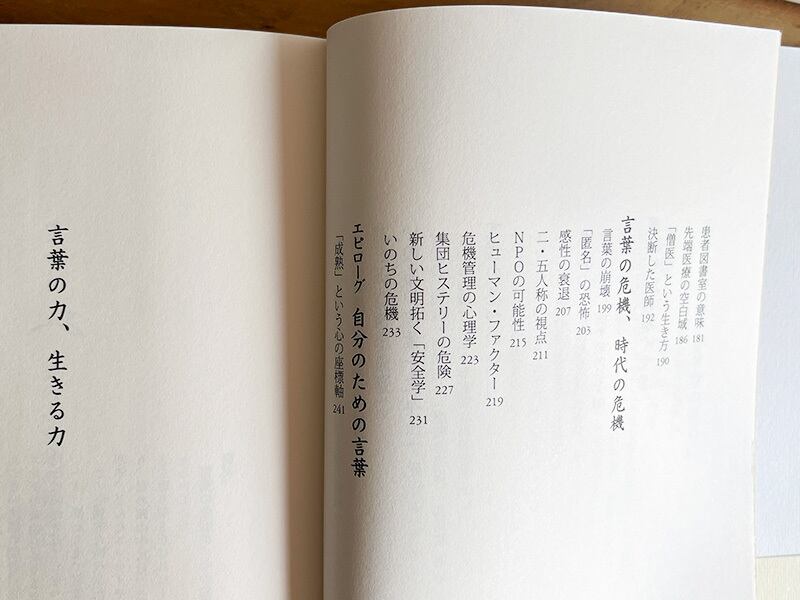 患者図書室の意味 181
先端医療の空白域 186
「僧医」という生き方 190
決断した医師 192
言葉の危機、時代の危機
言葉の崩壊 199
「匿名」の恐怖 203
感性の衰退 207
二・五人称の視点 211
NPOの可能性 215
ヒューマン・ファクター 219
危機管理の心理学 223
集団ヒステリーの危険 227
新しい文明拓く「安全学」 231
いのちの危機 233
エピローグ 自分のための言葉
「成熟」という心の座標軸 241
言葉の力、生きる力